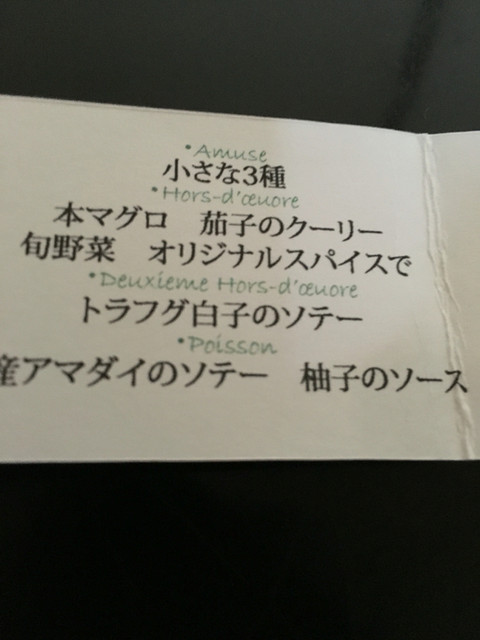 •Amuse
小さな3種
•Hors-d'œuore
本マグロ　茄子のクーリー
旬野菜　オリジナルスパイスで
•Deuxieme Hors-d'œuore
トラフグ白子のソテー
•Poisson
産アマダイのソテー　柚子のソース